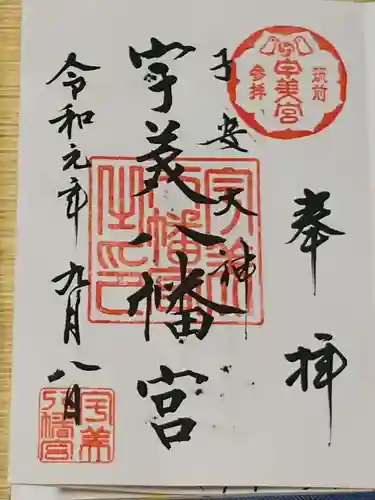 筑前
宇美宮
参拝
奉拝
子安大神
宇美八幡宮
令和元年九月八日
宇美
八幡
宮
之印
宇美
八幡宮